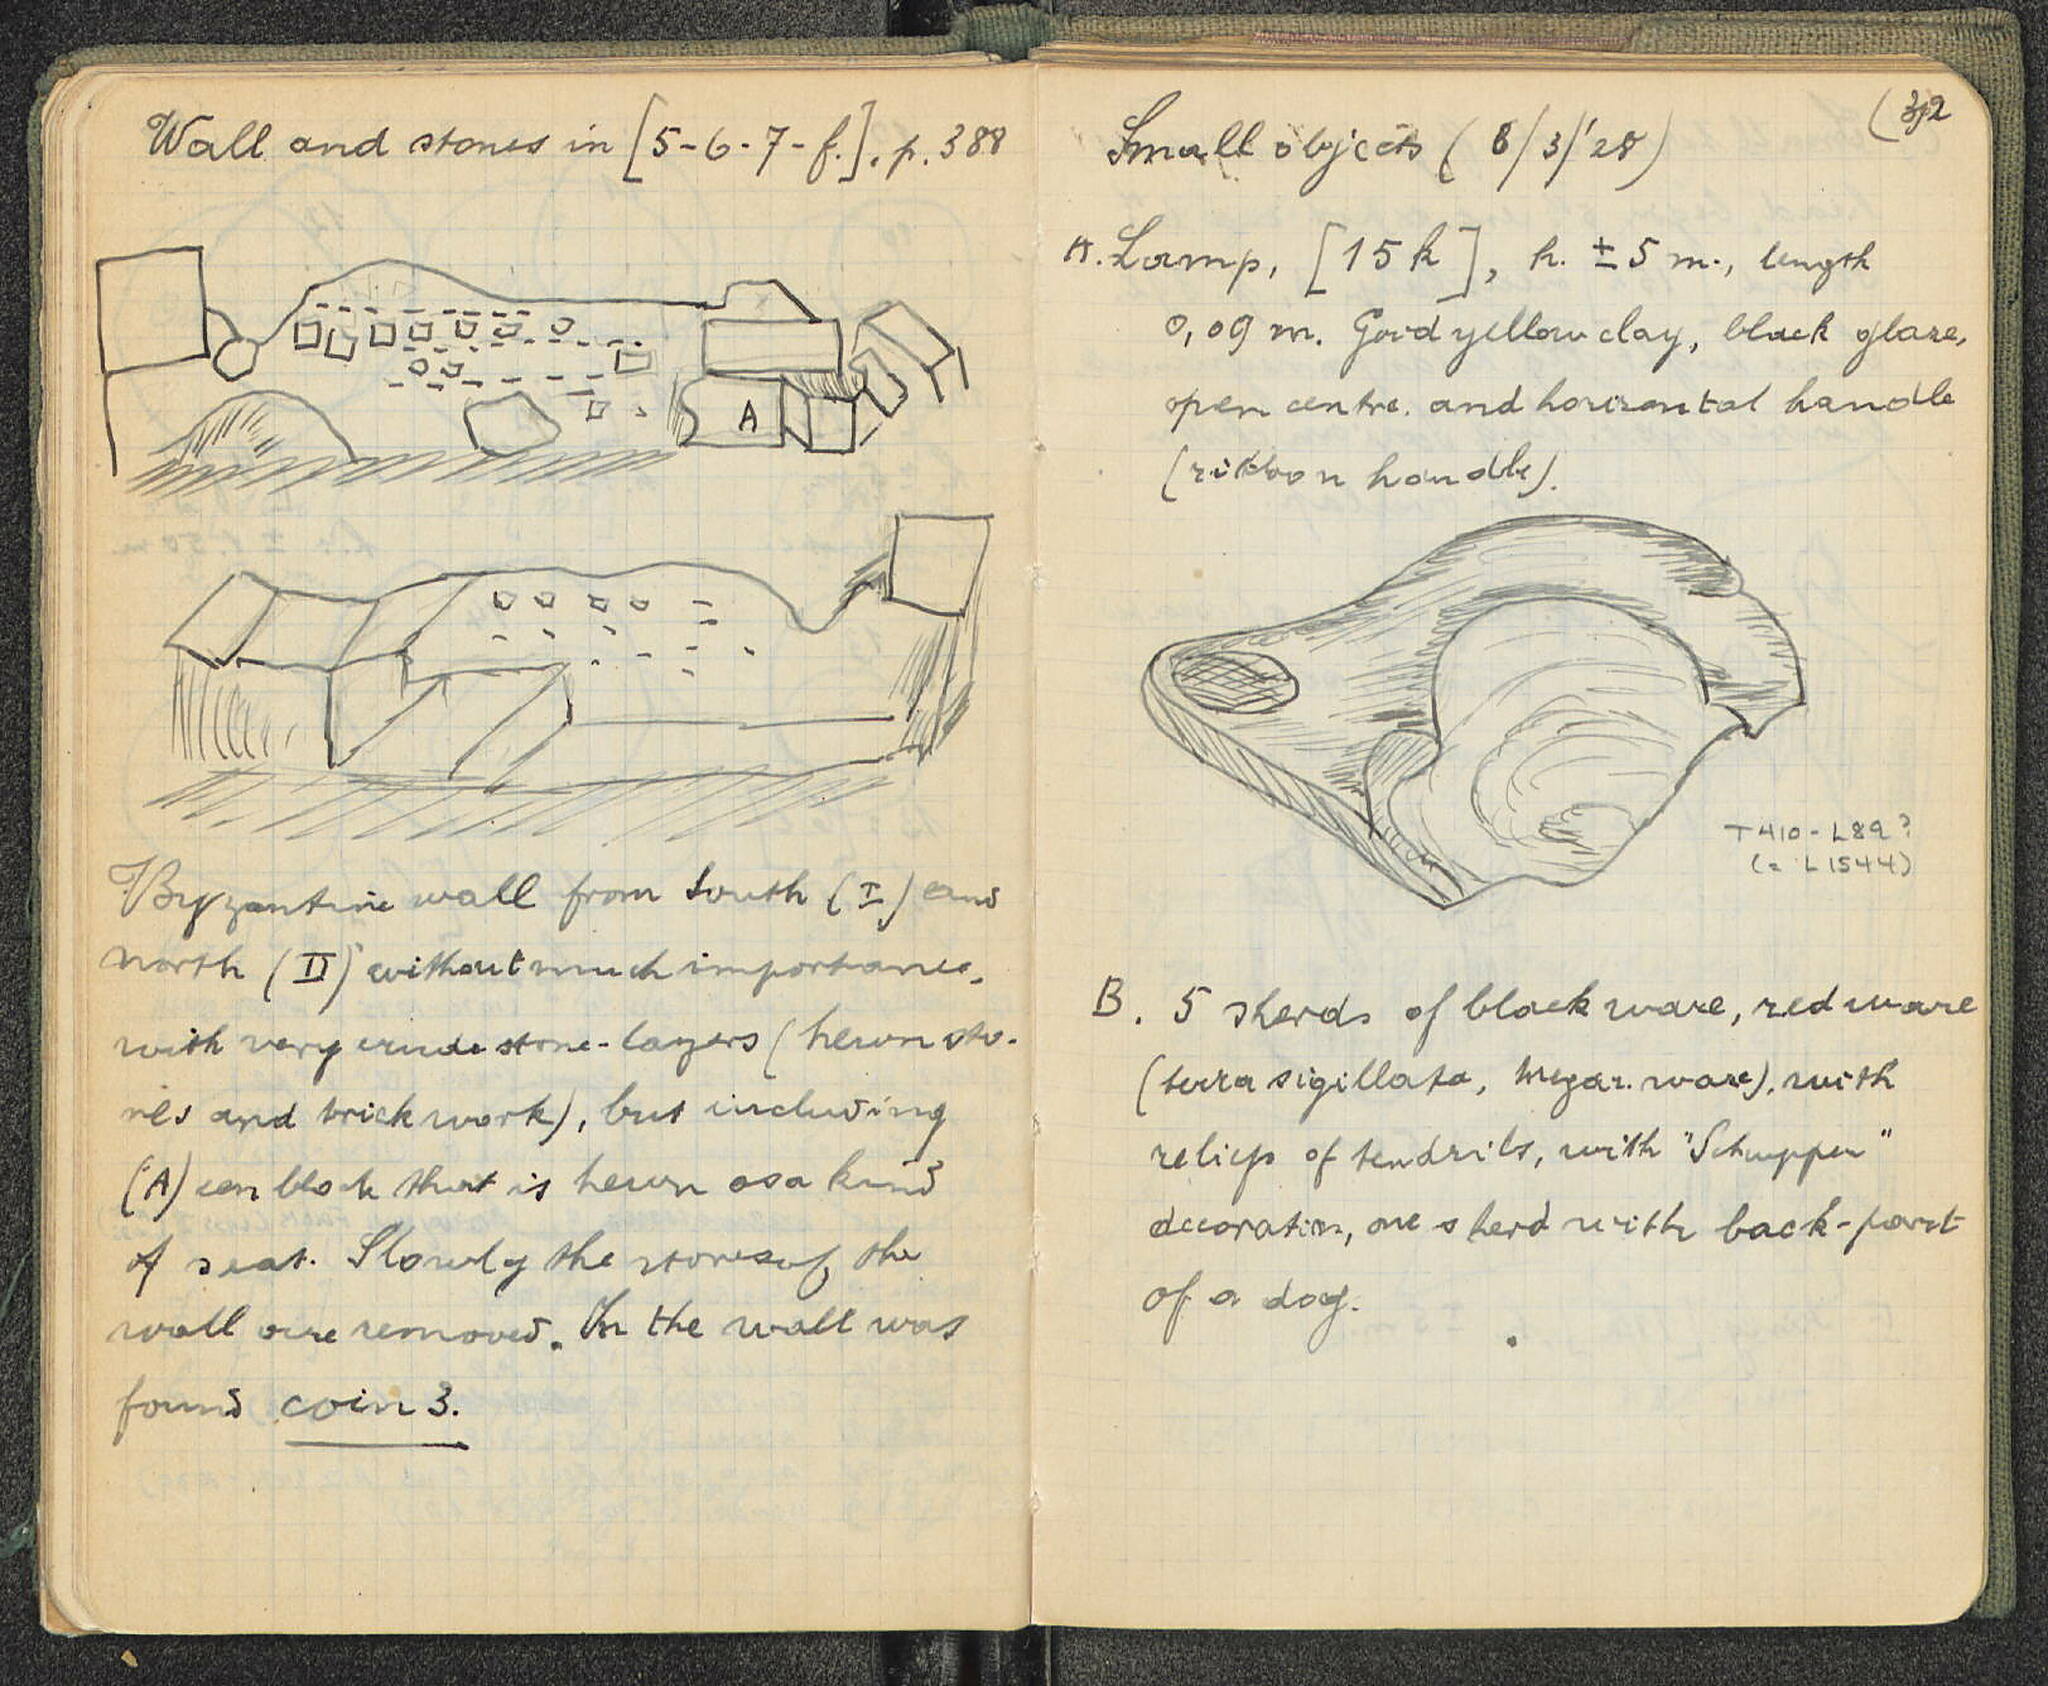 Wall and stones in [5-6-7-f.], p. 388
A
Byzantine wall from South (I) and
north (II) without much importance,
with very crude stone-layers (hewn sto-
nes and brickwork), but including
(A) een block that is hewn as a kind
of seat. Slowly the stones of the
wall are removed. In the wall was
found coin 3.
Small objects (8/3/'28)
A. Lamp, [15k], h. ± 5 m., length
0,09 m. Good yellow clay, black glaze,
open centre. and horizontal handle
(ribbon handle).
T410 - L89?
(= L1544)
B. 5 sherds of black ware, red ware
(terra sigillata, Megar. ware), with
reliefs of tendrils, with "Schuppen"
decoration, one sherd with back-part
of a dog.